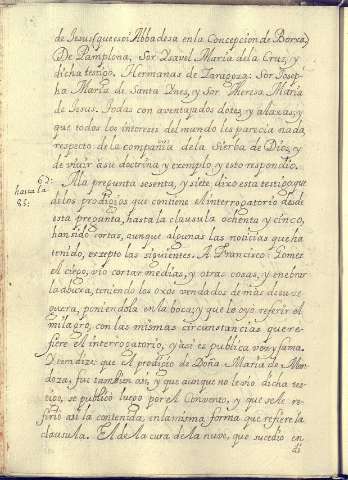 de Jesus (que es oi Abbadesa en la Concepcion de Borxa)
De Pamplona; Sor Ysavel Maria dela Cruz, y
dicha testigo. Hermanas de Zaragoza: Sor Josep-
ha Maria de Santa Ynes, y Sor Theresa Maria
de Jesus. Todas con aventajados dotes, y alaxas; y
que todos los intereses del mundo les parecia nada,
respecto de la compañia de la Sierba de Dios, y
de vivir à su doctrina y exemplo, y esto respondio.
67:
hasta la
85:
Ala pregunta sesenta, y siete dixo esta testigo que
delos prodigios que contiene el Interrogatorio desde
esta pregunta, hasta la clausula ochenta y cinco,
han sido cortas, aunque algunas las noticias que ha
tenido, excepto las siguientes. A Francisco Gomez
el ciego, vio cortar medias, y otras cosas, y enebrar
la abuxa, teniendo los oxos vendados demas de su ce-
guera, poniendola en la boca; y que lo oyo referir el
milagro, con las mismas circunstancias que re-
fiere el Interrogatorio, y asi es publica voz y fama.
Y ten dize: que el prodigio de Doña Maria de Men-
doza, fue tambien asi, y que aunque no le vio dicha tes-
tigo, se publicó luego por el Convento, y que se le re-
firio asi la contenida, en la misma forma que refiere la
clausula. El de la cura de la nuve, que sucedio en
di